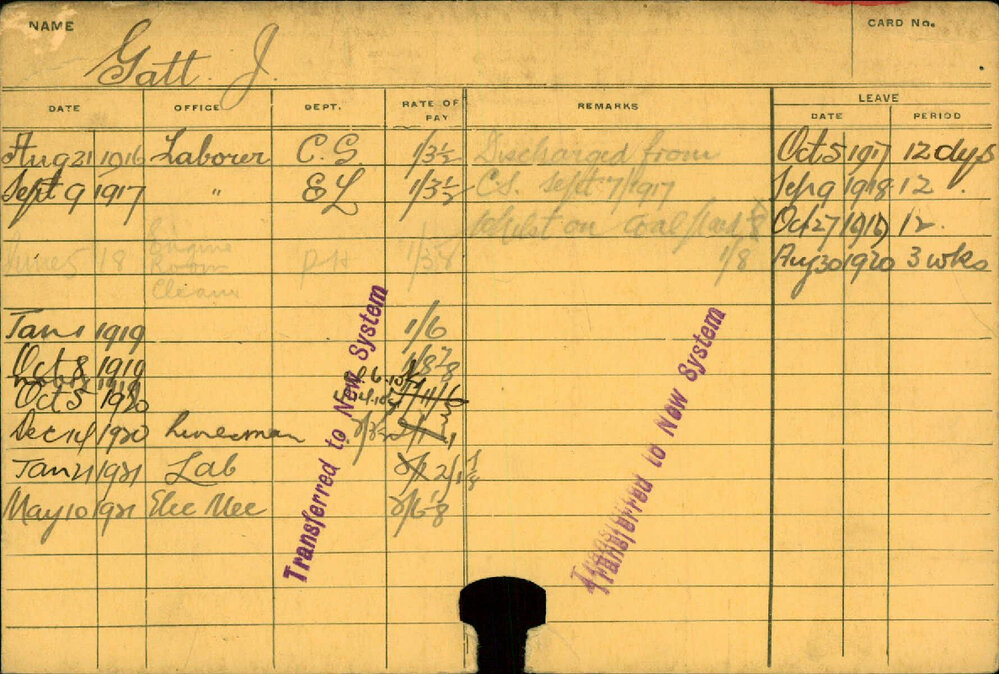 NAME
CARD No.
Gatt. J.
DATE OFFICE DEPT. RATE OF PAY REMARKS LEAVE
DATE PERIOD
Aug 21 1916 Laborer C.S. 1/3½ Discharged from Oct 5 1917 12 dys
Sept 9 1917 " EL 1/3½ C.S. Sept 7/1917 Sep 9 1918 12
whilst on coal Oct 27 1919 12
June 5 18 Engine Room Cleaner PH 1/8 Aug 30 1920 3 wks
Jan 1 1919 1/6
Oct 8 1919 1/8⅞
Oct 5 1920
Dec 14 1920 Linesman
Jan 21 1921 Lab 2/1⅛
May 10 1921 Elec Mec
Transferred to New System
Transferred to New System